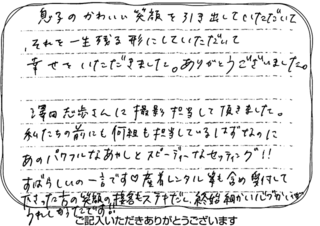 息子のかわいい笑顔を引き出していただいて
、それを一生残る形にしていただいて
幸せをいただきました。ありがとうございました。
澤田 さんに撮影担当して頂きました。
私たちの前にも何組も担当しているはずなのに
あのパワフルなあやしとスピーディーなセッティング!!
すばらしいの一言です♡産着レンタル等も含め受付して
下さった方の笑顔の接客もステキだし、終始細かい心づかいが
うれしかったです!!
ご記入いただきありがとうございます